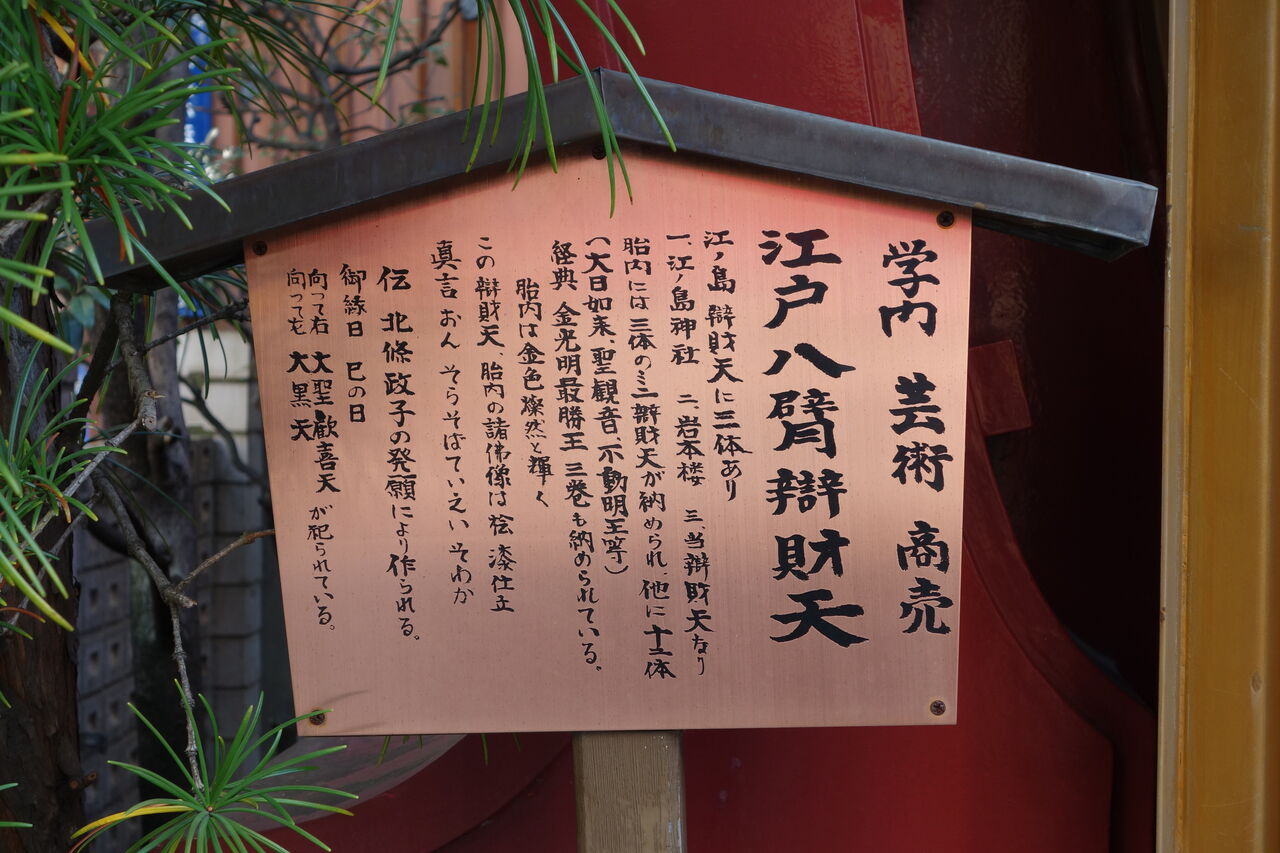 学内 芸術 商売
江戸八臂辯財天
江ノ島 辯財天に三体あり
一、江ノ島神社 二、岩本楼 三、当辯財天なり
胎内には三体のミニ辯財天が納められ、他に十二体
(大日如来、聖観音、不動明王等)
経典 金光明最勝王 三巻も納められている。
胎内は金色燦然と輝く
この辯財天、胎内の諸佛像は桧 漆仕立
真言 おん そらそばていえい そわか
伝 北條政子の発願により作られる。
御縁日 巳の日
向って右 大聖歓喜天が祀られている。
向って左 大黒天